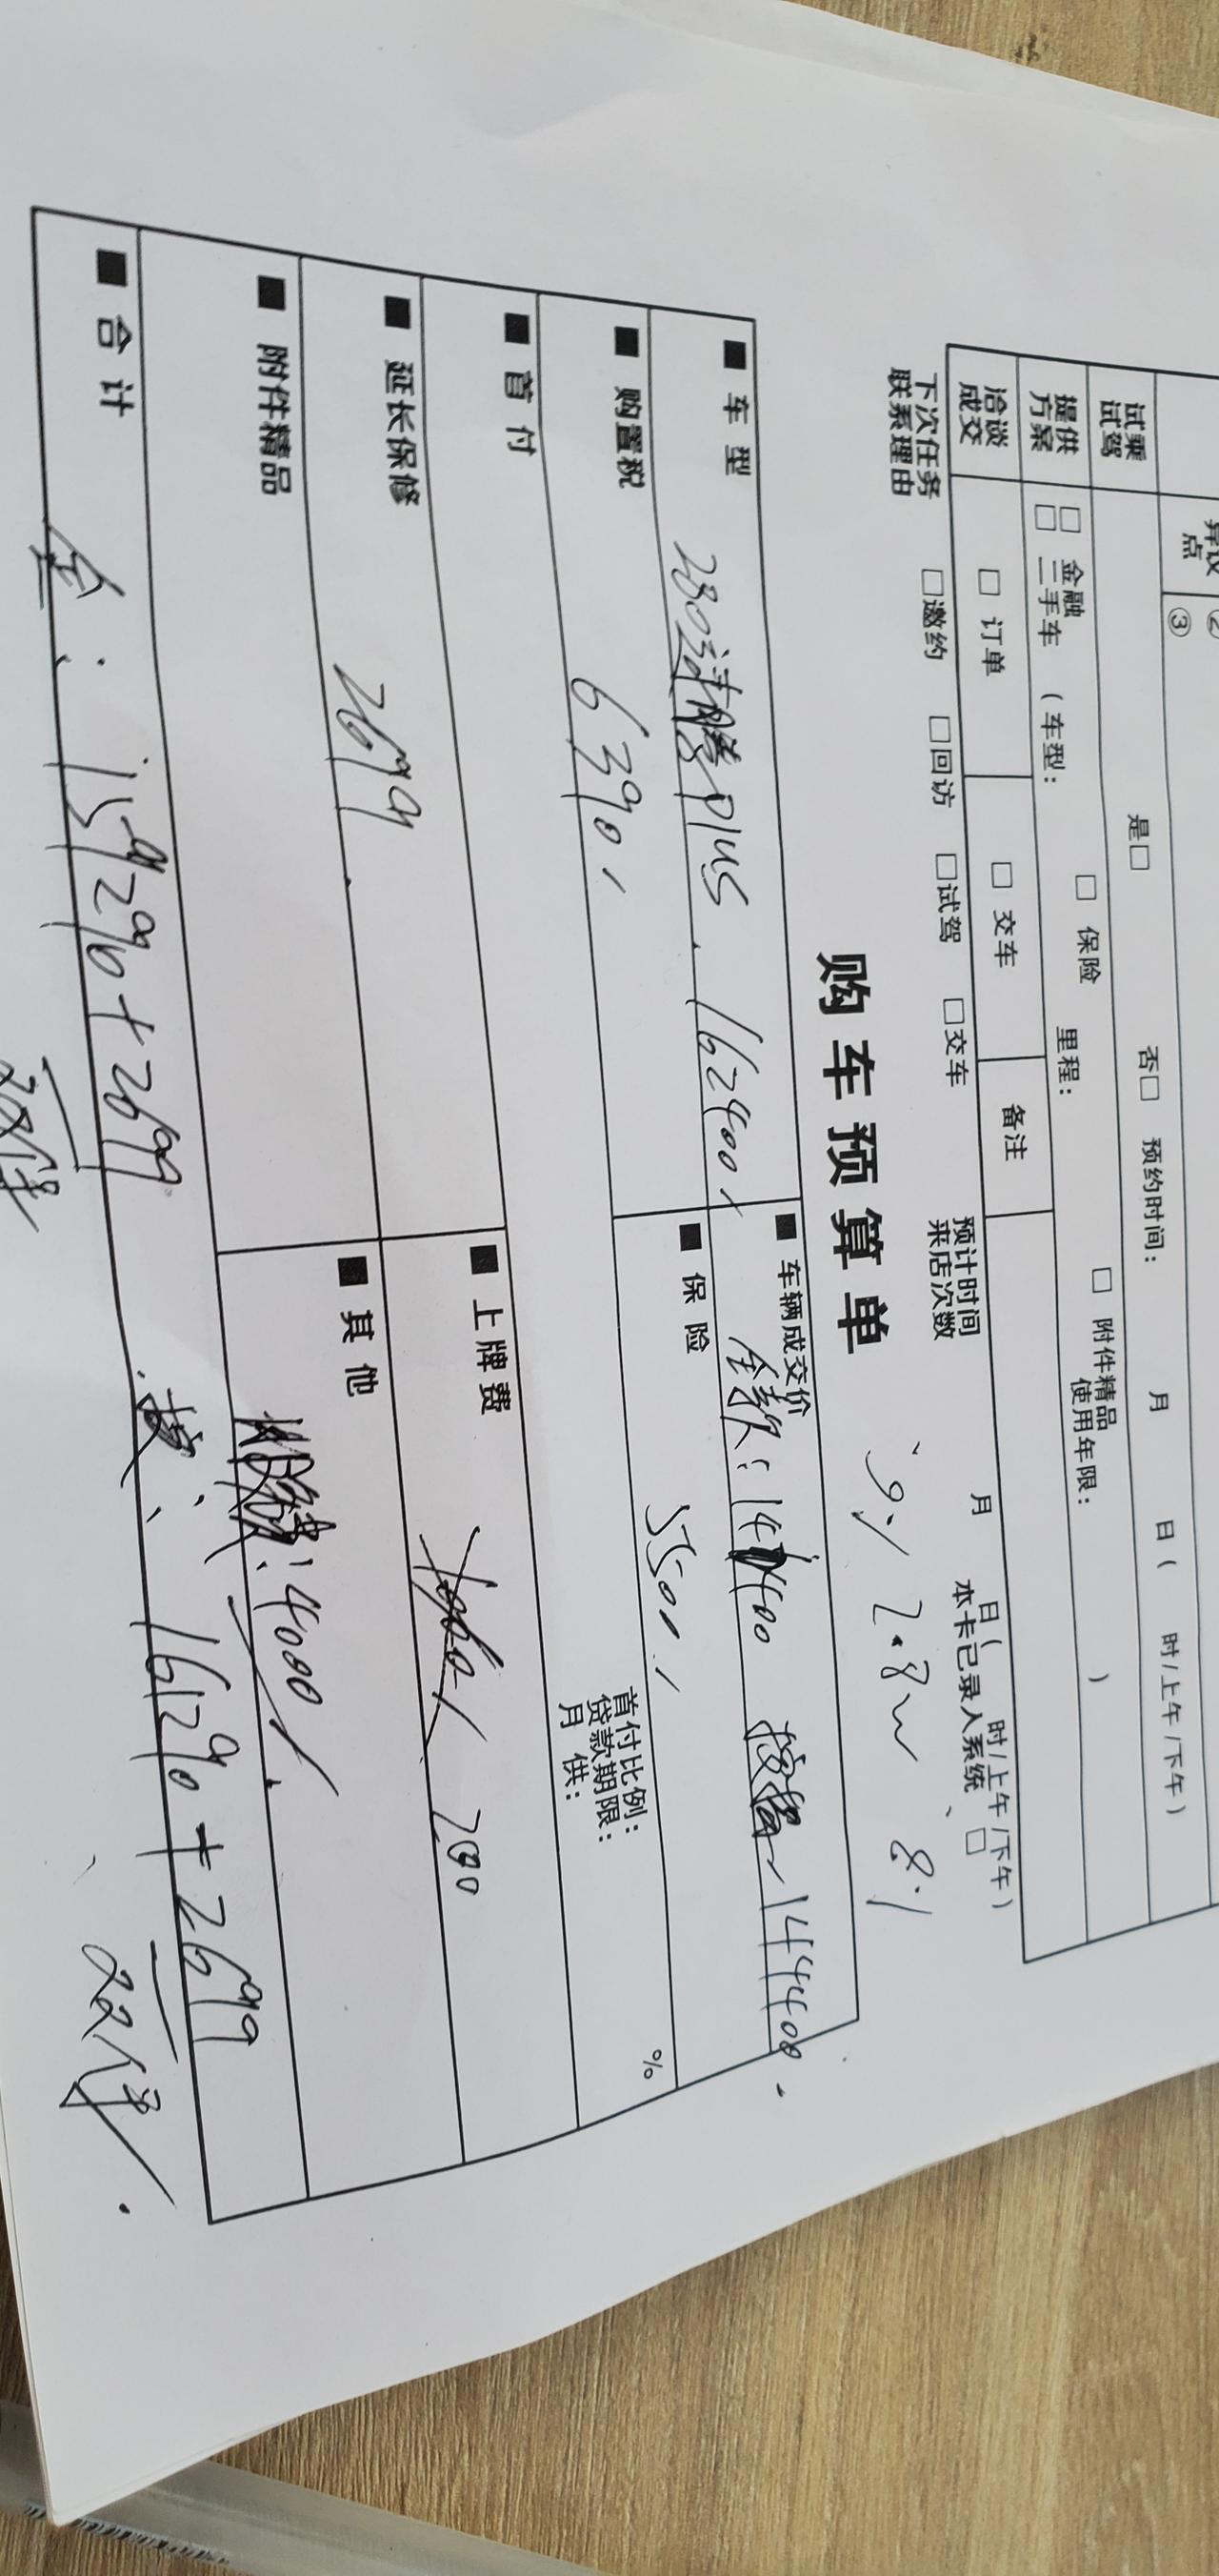 异议点 ② ③
试乘试驾 是□ 否□ 预约时间： 月 日（ 时/上午/下午）
提供方案 □ 金融 □ 保险 □ 附件精品
□ 二手车 （车型： 里程： 使用年限： ）
洽谈成交 □ 订单 □ 交车 备注
下次任务 □邀约 □回访 □试驾 □交车 预计时间 月 日（ 时/上午/下午）
联系理由 来店次数 本卡已录入系统 □
购车预算单 9.1 2.8w 8.1
■ 车型 280 plus 162400 ■ 车辆成交价 全款：14 400 按揭 144400
■ 购置税 6390 ■ 保险 5500
■ 首付 首付比例： %
贷款期限：
月 供：
■ 延长保修 2699 ■ 上牌费 200
■ 附件精品 ■ 其他 4000
■ 合计 全：159290+2699 按：161290+2699